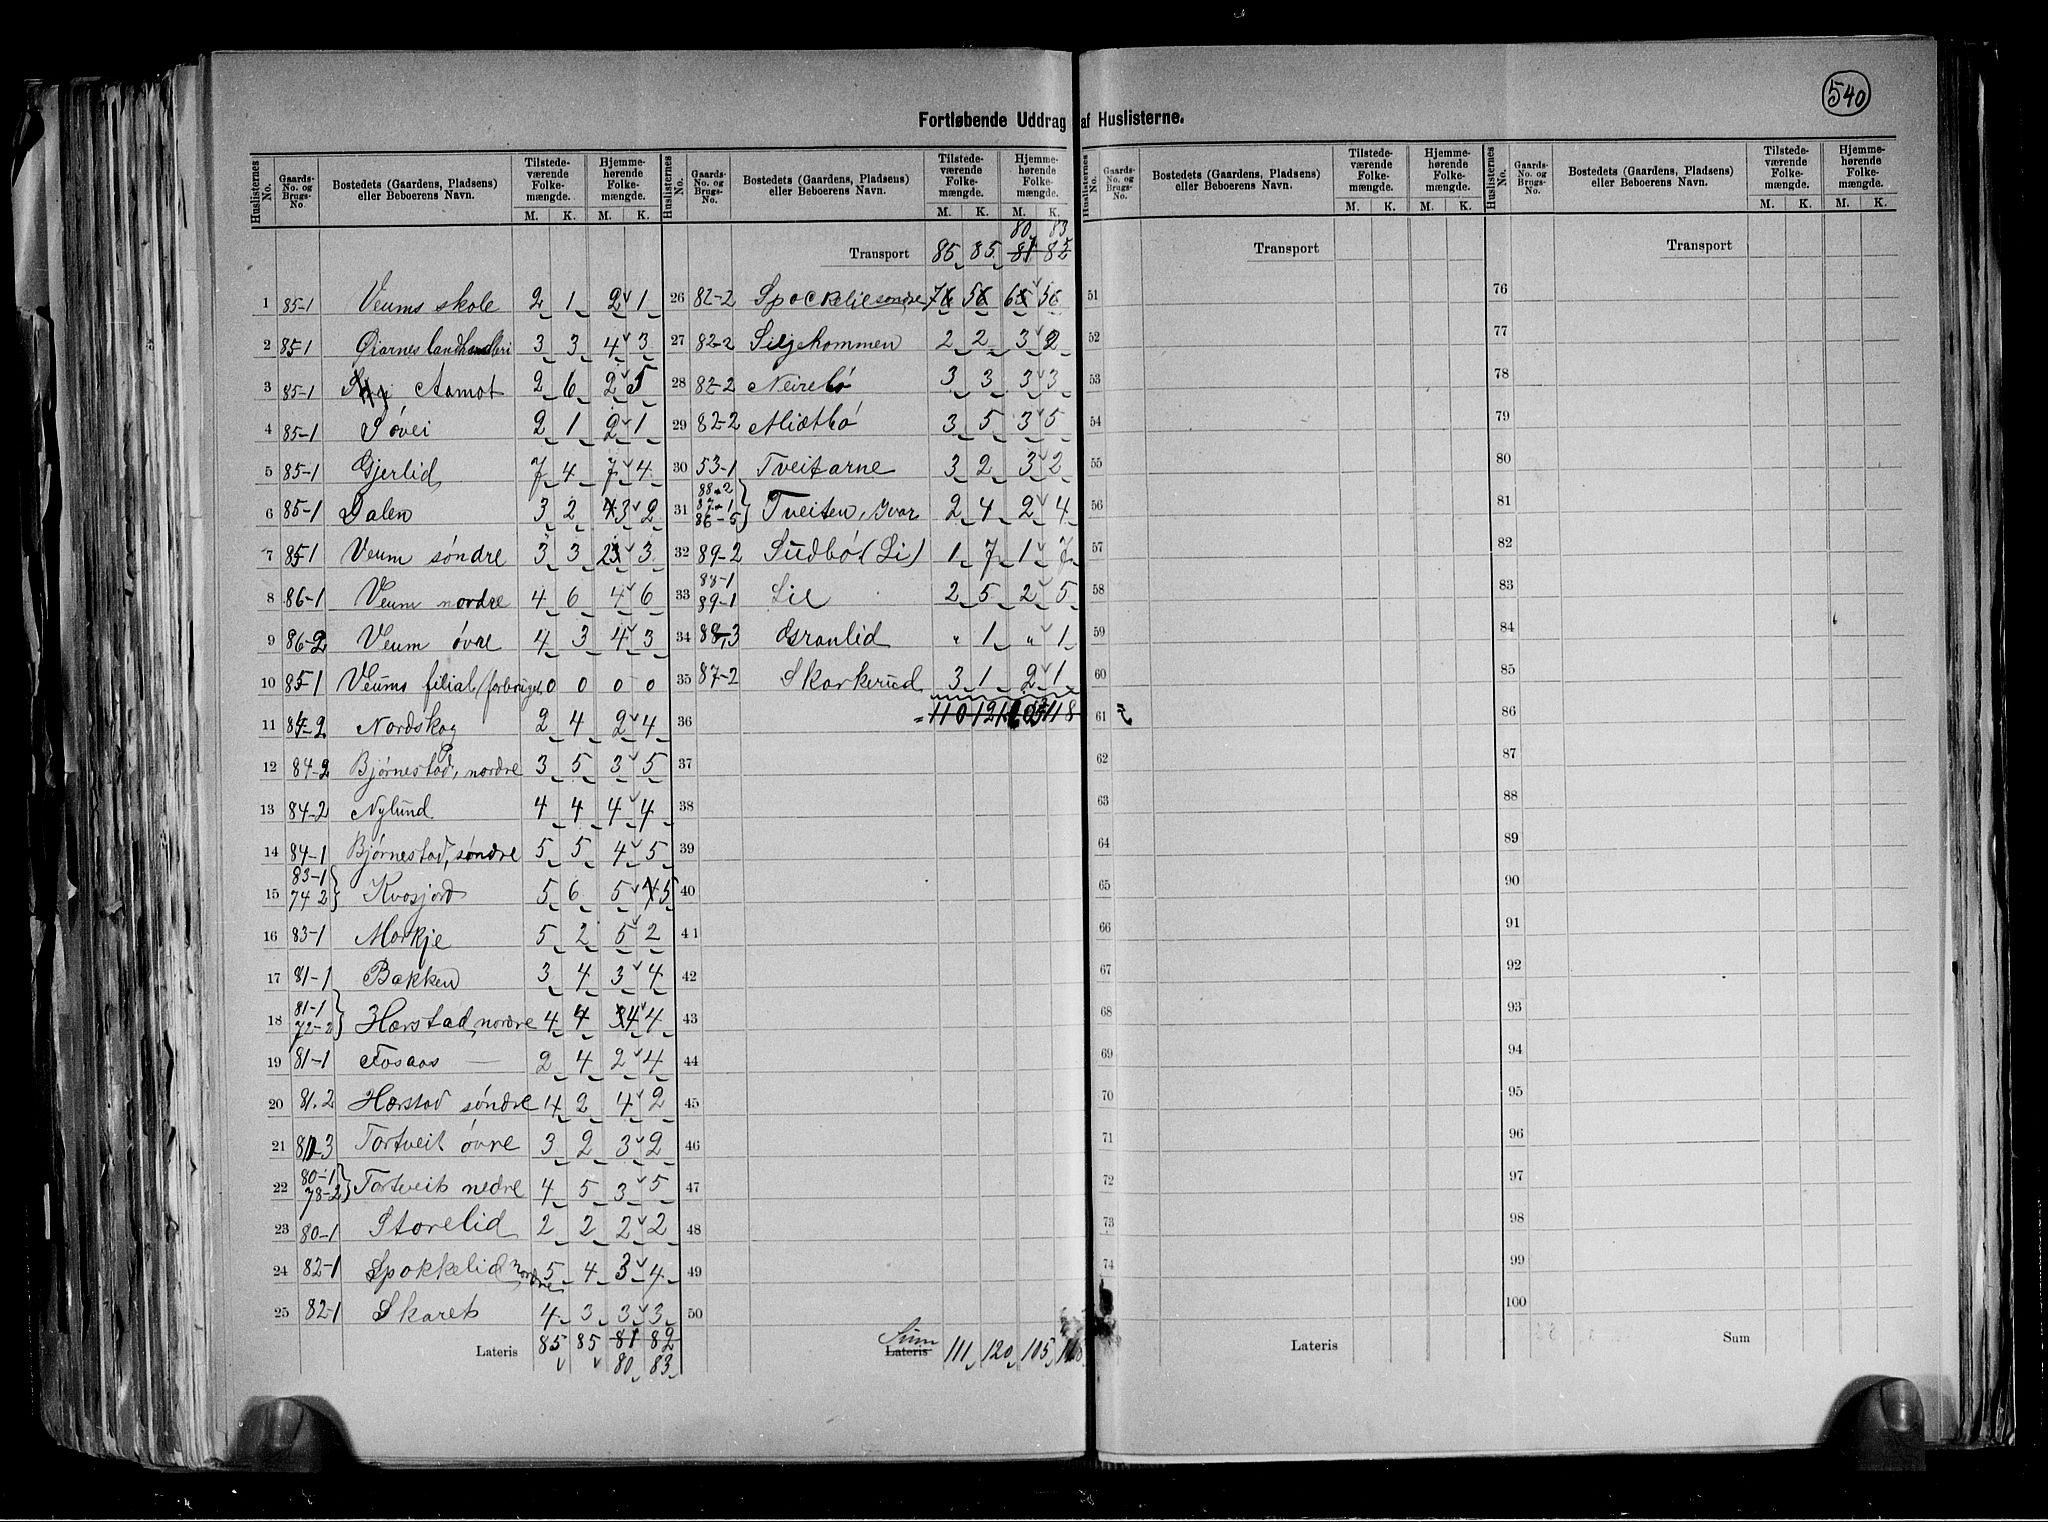 540
Fortløbende Uddrag af Huslisterne.
Huslisternes No. Gaards-No. og Brugs-No. Bostedets (Gaardens, Pladsens) eller Beboerens Navn. Tilstedeværende Folkemængde. M. K. Hjemmehørende Folkemængde. M. K.
1 85-1 Veums skole 2 1 2 1
2 85-1 Øiarnes landhandleri 3 3 4 3
3 85-1 Aamot 2 6 2 5
4 85-1 Søvei 2 1 2 1
5 85-1 Gjerlid 7 4 7 4
6 85-1 Dalen 3 2 3 2
7 85-1 Veum søndre 3 3 2 3
8 86-1 Veum nordre 4 6 4 6
9 86-2 Veum øvre 4 3 4 3
10 85-1 Veums filial 0 0 0 0
11 84-2 Nordskog 2 4 2 4
12 84-2 Bjørnestad, nordre 3 5 3 5
13 84-2 Nylund 4 4 4 4
14 84-1 Bjørnestad, søndre 5 5 4 5
15 83-1 74 2 } Kvosjord 5 6 5 5
16 83-1 Morkje 5 2 5 2
17 81-1 Bakken 3 4 3 4
18 81-1 72-2 } Hærstad, nordre 4 4 4 4
19 81-1 Fosaas — 2 4 2 4
20 81.2 Hærstad søndre 4 2 4 2
21 81-3 Tortveit øvre 3 2 3 2
22 80-1 78-2 } Tortveit nedre 4 5 3 5
23 80-1 Storelid 2 2 2 2
24 82-1 Spokkelid nordre 5 4 3 4
25 82-1 Skaret 4 3 3 3
Lateris 85 85 81 82
80 83
Huslisternes No. Gaards-No. og Brugs-No. Bostedets (Gaardens, Pladsens) eller Beboerens Navn. Tilstedeværende Folkemængde. M. K. Hjemmehørende Folkemængde. M. K.
80 83
Transport 85 85 81 82
26 82-2 Spockelie søndre 7 5 6 5
27 82-2 Siljekommen 2 2 3 2
28 82-2 Neirebø 3 3 3 3
29 82-2 Midtbø 3 5 3 5
30 53-1 Tveitarne 3 2 3 2
31 88-2 87-1 86-5 } Tveiten, Ivar 2 4 2 4
32 89-2 Sudbø (Li) 1 7 1 7
33 88-1 89-1 Lie 2 5 2 5
34 88-3 Granlid " 1 " 1
35 87-2 Skarkerud 3 1 2 1
36 = 110 121 105 118
37
38
39
40
41
42
43
44
45
46
47
48
49
50
Sum Lateris 111 120 105 118
Huslisternes No. Gaards-No. og Brugs-No. Bostedets (Gaardens, Pladsens) eller Beboerens Navn. Tilstedeværende Folkemængde. M. K. Hjemmehørende Folkemængde. M. K.
Transport
51
52
53
54
55
56
57
58
59
60
61
62
63
64
65
66
67
68
69
70
71
72
73
74
Lateris
Huslisternes No. Gaards-No. og Brugs-No. Bostedets (Gaardens, Pladsens) eller Beboerens Navn. Tilstedeværende Folkemængde. M. K. Hjemmehørende Folkemængde. M. K.
Transport
76
77
78
79
80
81
82
83
84
85
86
87
88
89
90
91
92
93
94
95
96
97
98
99
100
Sum